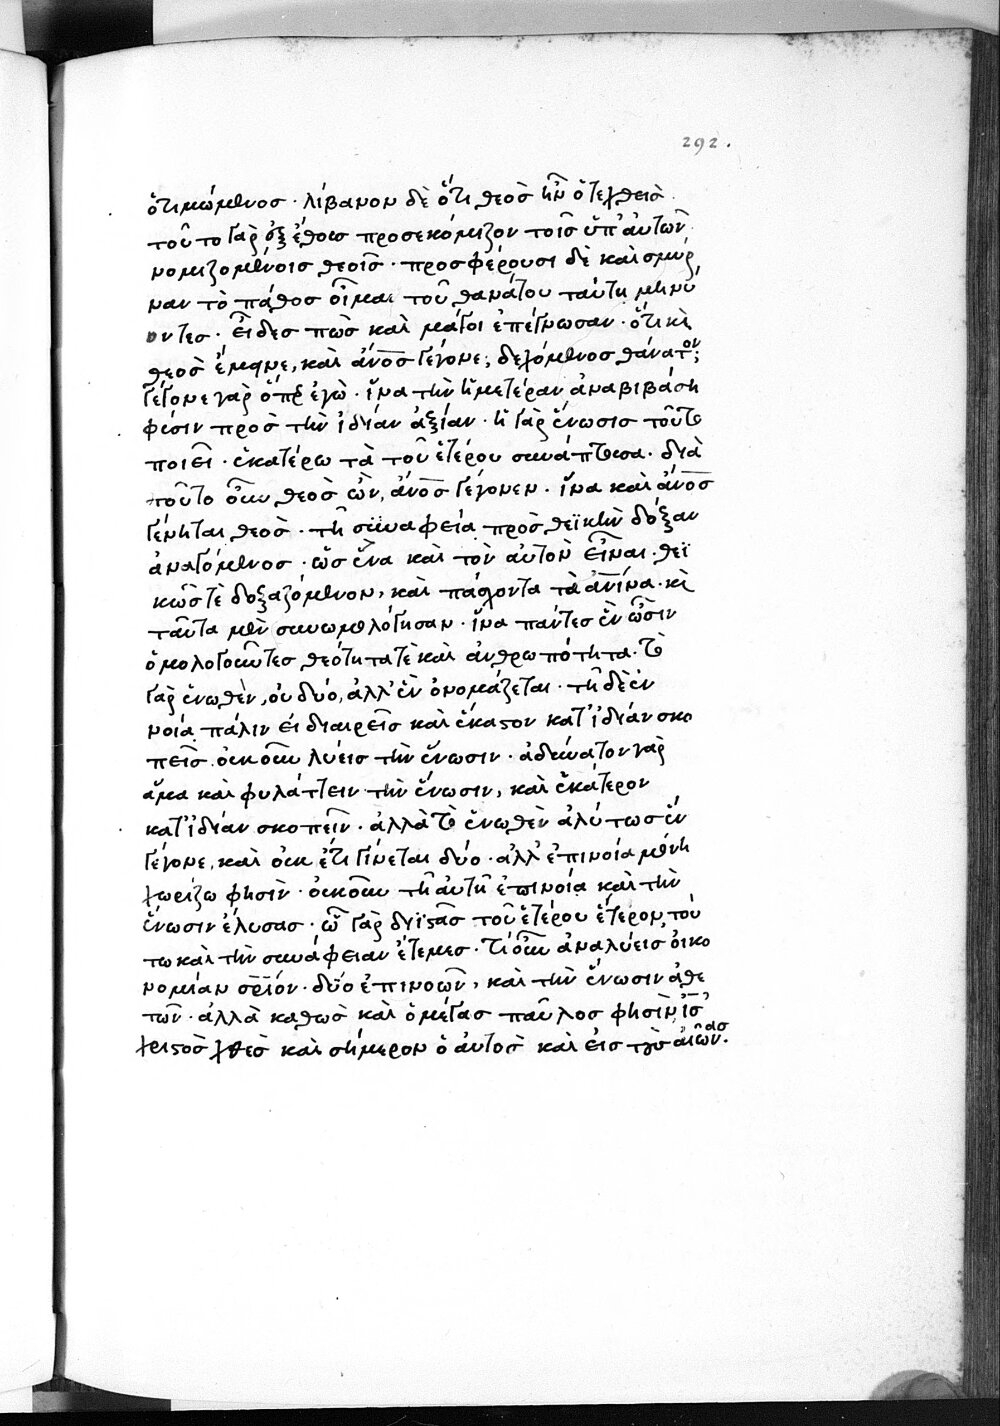 292.
ὁτιμώμενοσ · λίβανον δὲ ὅτι θεὸσ ἦν ὁ τεχθεισ ·
τοῦτο γὰρ ἐξ ἔθουσ προσεκόμιζον τοῖσ ὑπ' αὐτῶν
νομιζομένοισ θεοῖσ · προσφέρουσι δὲ καὶ σμύρ
ναν τὸ πάθοσ οἶμαι τοῦ θανάτου ταύτη μηνύ
οντεσ · εἶδεσ πῶσ καὶ μάγοι ἐπέγνωσαν · ὅτι κὶ
θεοσ ἔμεινε, καὶ ἄνοσ γέγονε, δεχόμενοσ θάνατον;
γέγονε γὰρ ὅπερ ἐγὼ · ἵνα τὴν ἡμετέραν ἀναβιβάση
φύσιν πρὸσ τὴν ἰδίαν ἀξίαν · ἡ γὰρ ἕνωσισ τοῦτο
ποιεῖ · ἑκατέρω τὰ τοῦ ἑτέρου συνάπτουσα · διὰ
τοῦτο οὖν θεὸσ ὢν, ἄνοσ γέγονεν · ἵνα καὶ ἄνοσ
γένηται θεὸσ · τῆ συναφεία πρὸσ θεϊκὴν δόξαν
ἀναγόμενοσ · ὡσ ἕνα καὶ τὸν αὐτὸν εἶναι · θεϊ
κῶσ τὲ δοξαζόμενον, καὶ πάσχοντα τὰ ἀνίνα · κὶ
ταῦτα μὲν συνωμολόγησαν · ἵνα πάντεσ ἓν ὦσιν
ὁμολογοῦντεσ θεότητα τὲ καὶ ἀνθρωπότητα · τὸ
γὰρ ἑνωθὲν, οὐ δύο, ἀλλ' ἓν ὀνομάζεται · τῆ δὲ ἐν
νοία πάλιν εἰ διαιρεῖσ καὶ ἕκαστον κατ' ἰδίαν σκο
πεῖσ · οὐκοῦν λύεισ τὴν ἕνωσιν · ἀδύνατον γὰρ
ἅμα καὶ φυλάττειν τὴν ἕνωσιν, καὶ ἑκάτερον
κατ' ἰδίαν σκοπεῖν · ἀλλὰ τὸ ἑνωθὲν ἀλύτωσ ἓν
γέγονε, καὶ οὐκ ἔτι γίνεται δύο · ἀλλ' ἐπινοία μόνη
χωρίζω φησὶν · οὐκοῦν τῆ αὐτῆ ἐπινοία καὶ τὴν
ἕνωσιν ἔλυσασ · ὧ γὰρ διϊστᾶσ τοῦ ἑτέρου ἕτερον, τού
τω καὶ τὴν συνάφειαν ἔτεμεσ · τί οὖν ἀναλύεισ οἰκο
νομίαν σρίον · δύο ἐπινοῶν, καὶ τὴν ἕνωσιν ἀθε
τῶν · ἀλλὰ καθὼσ καὶ ὁ μέγασ παῦλοσ φησὶν, ἰσ
χριστὸσ χθὲσ καὶ σήμερον ὁ αὐτὸσ καὶ εἰσ τοὺσ αἰῶνασ.